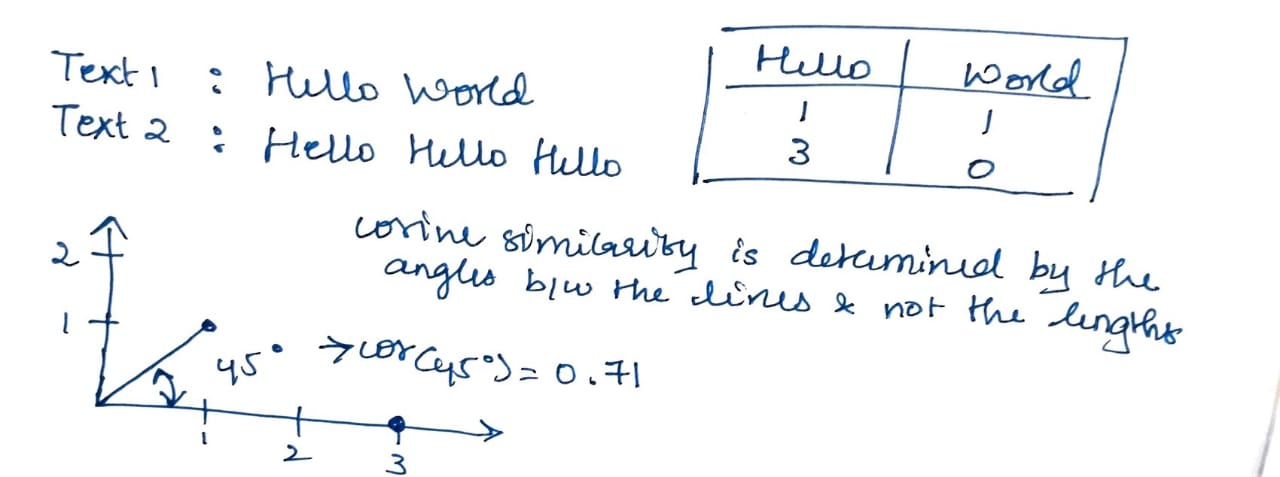 Text 1 : Hello World
Text 2 : Hello Hello Hello
Hello World
1 1
3 0
cosine similarity is determined by the
angles b/w the lines & not the lengths
2
1
45° → cos(45°) = 0.71
1 2 3